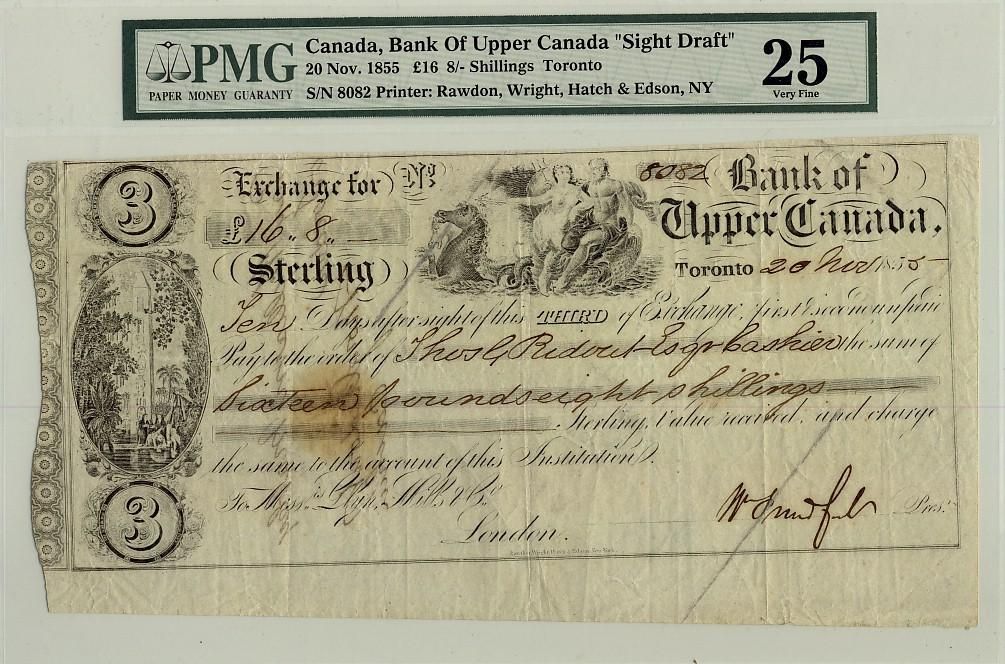 PMG
PAPER MONEY GUARANTY
Canada, Bank Of Upper Canada "Sight Draft"
20 Nov. 1855 £16 8/- Shillings Toronto
S/N 8082 Printer: Rawdon, Wright, Hatch & Edson, NY
25
Very Fine
3
Exchange for No 8082 Bank of
£16 „ 8 „ — Upper Canada.
(Sterling) Toronto 20 Nov 1855
Ten Days after sight of this THIRD of Exchange, first & second unpaid
Pay to the order of Thos G Ridout Esqr Cashier the sum of
Sixteen pounds eight shillings
Sterling, Value received, and charge
the same to the account of this Institution.
To Messrs Glyn, Mills & Co.
London. Pres.
3
Rawdon, Wright, Hatch & Edson, New York